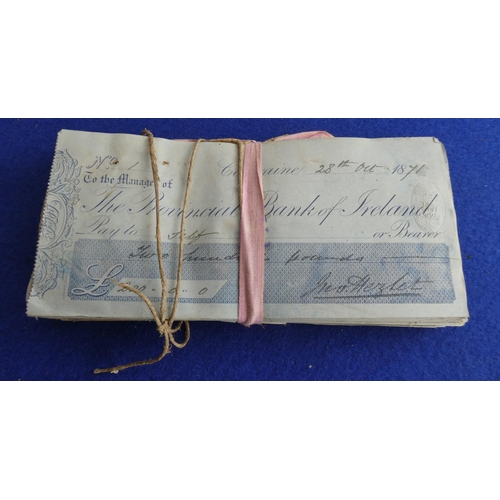 No 1 28th Oct 1871
To the Manager of
The Provincial Bank of Ireland
Pay to Self or Bearer
Two hundred pounds
£ 200-0-0 Jno Hezlet